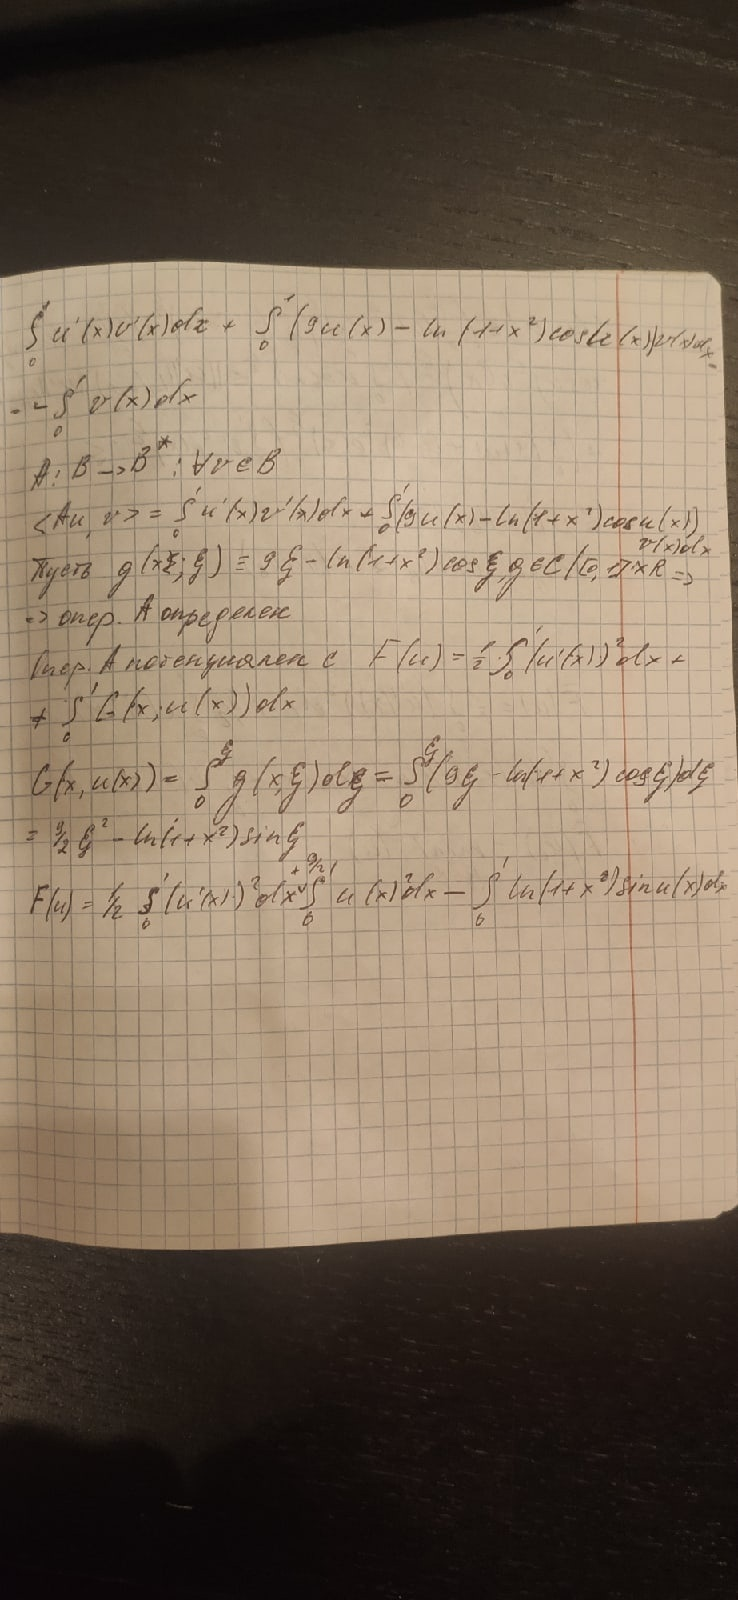 ∫₀¹ u'(x)v'(x)dx + ∫₀¹ (9u(x) − ln(1+x²)cosu(x))v(x)dx −
− ∫₀¹ v(x)dx
A: B → B* : ∀v∈B
<Au, v> = ∫₀¹ u'(x)v'(x)dx + ∫₀¹ (9u(x) − ln(1+x²)cosu(x))
v(x)dx
Пусть g(x; ξ) ≡ 9ξ − ln(1+x²)cosξ, g∈C([0,1]×R ⇒
⇒ опер. A определен
Опер. A потенциален с F(u) = 1/2 ∫₀¹ (u'(x))²dx +
+ ∫₀¹ G(x; u(x))dx
G(x, u(x)) = ∫₀^ξ g(x, ξ)dξ = ∫₀^ξ (9ξ − ln(1+x²)cosξ)dξ
= 9/2 ξ² − ln(1+x²)sinξ
F(u) = 1/2 ∫₀¹ (u'(x))²dx + 9/2 ∫₀¹ u(x)²dx − ∫₀¹ ln(1+x²)sinu(x)dx